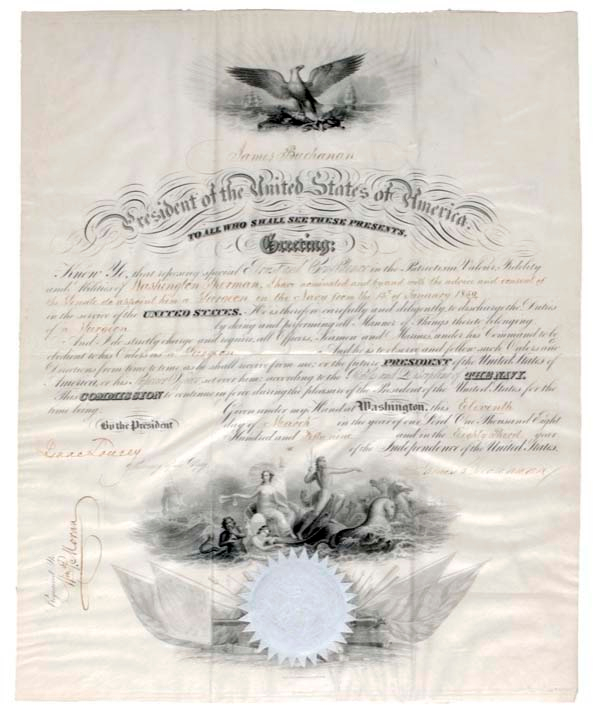 James Buchanan
President of the United States of America.
TO ALL WHO SHALL SEE THESE PRESENTS,
Greeting:
Know Ye, that reposing special Trust and Confidence in the Patriotism, Valour, Fidelity
and Abilities of Washington Sherman, I have nominated and by and with the advice and consent of
the Senate do appoint him a Surgeon in the Navy from the of January 1859
in the service of the UNITED STATES. He is therefore carefully and diligently to discharge the Duties
of a Surgeon by doing and performing all Manner of Things thereto belonging.
And I do strictly charge and require all Officers, Seamen and Marines under his Command to be
obedient to his Orders as a Surgeon And he is to observe and follow such Orders and
Directions from time to time as he shall receive from me, or the future PRESIDENT of the United States of
America, or his Superior Officer set over him, according to the Rules and Discipline of THE NAVY.
This COMMISSION to continue in force during the pleasure of the President of the United States for the
time being.
Given under my Hand at Washington, this Eleventh
day of March in the year of our Lord One Thousand Eight
By the President
Hundred and Fifty nine and in the Eighty third year
of the Independence of the United States.
Isaac Toucey
James Buchanan
Secretary of the Navy
Registered